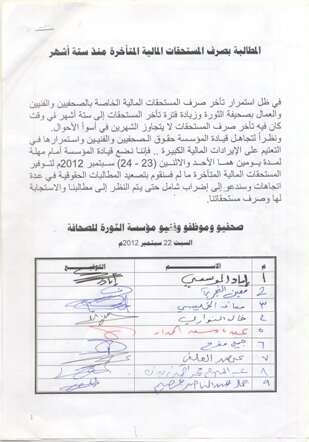 المطالبة بصرف المستحقات المالية المتأخرة منذ ستة أشهر
في ظل استمرار تأخر صرف المستحقات المالية الخاصة بالصحفيين والفنيين
والعمال بصحيفة الثورة وزيادة فترة تأخر المستحقات إلى ستة أشهر في وقت
كان فيه تأخر صرف المستحقات لا يتجاوز الشهرين في أسوأ الأحوال.
ونظراً لتجاهل قيادة المؤسسة حقوق الصحفيين والفنيين واستمرارها في
التعتيم على الإيرادات المالية الكبيرة .. فإننا نضع قيادة المؤسسة أمام مهلة
لمدة يومين هما الأحد والاثنين (23 - 24) سبتمبر 2012م لتوفير
المستحقات المالية المتأخرة ما لم فسنقوم بتصعيد المطالبات الحقوقية في عدة
اتجاهات وسندعو إلى إضراب شامل حتى يتم النظر إلى مطالبنا والاستجابة
لها وصرف مستحقاتنا.
صحفيو وموظفو وفنيو مؤسسة الثورة للصحافة
السبت 22 سبتمبر 2012م
م الاســـم التوقيع
١ إياد الموسمي إياد
٢ معين
٣ معاذ الخميسي
٤
٥ عبده مسعد
٦ جميل مفرح
٧
٨
٩ جمال عبدالناصر